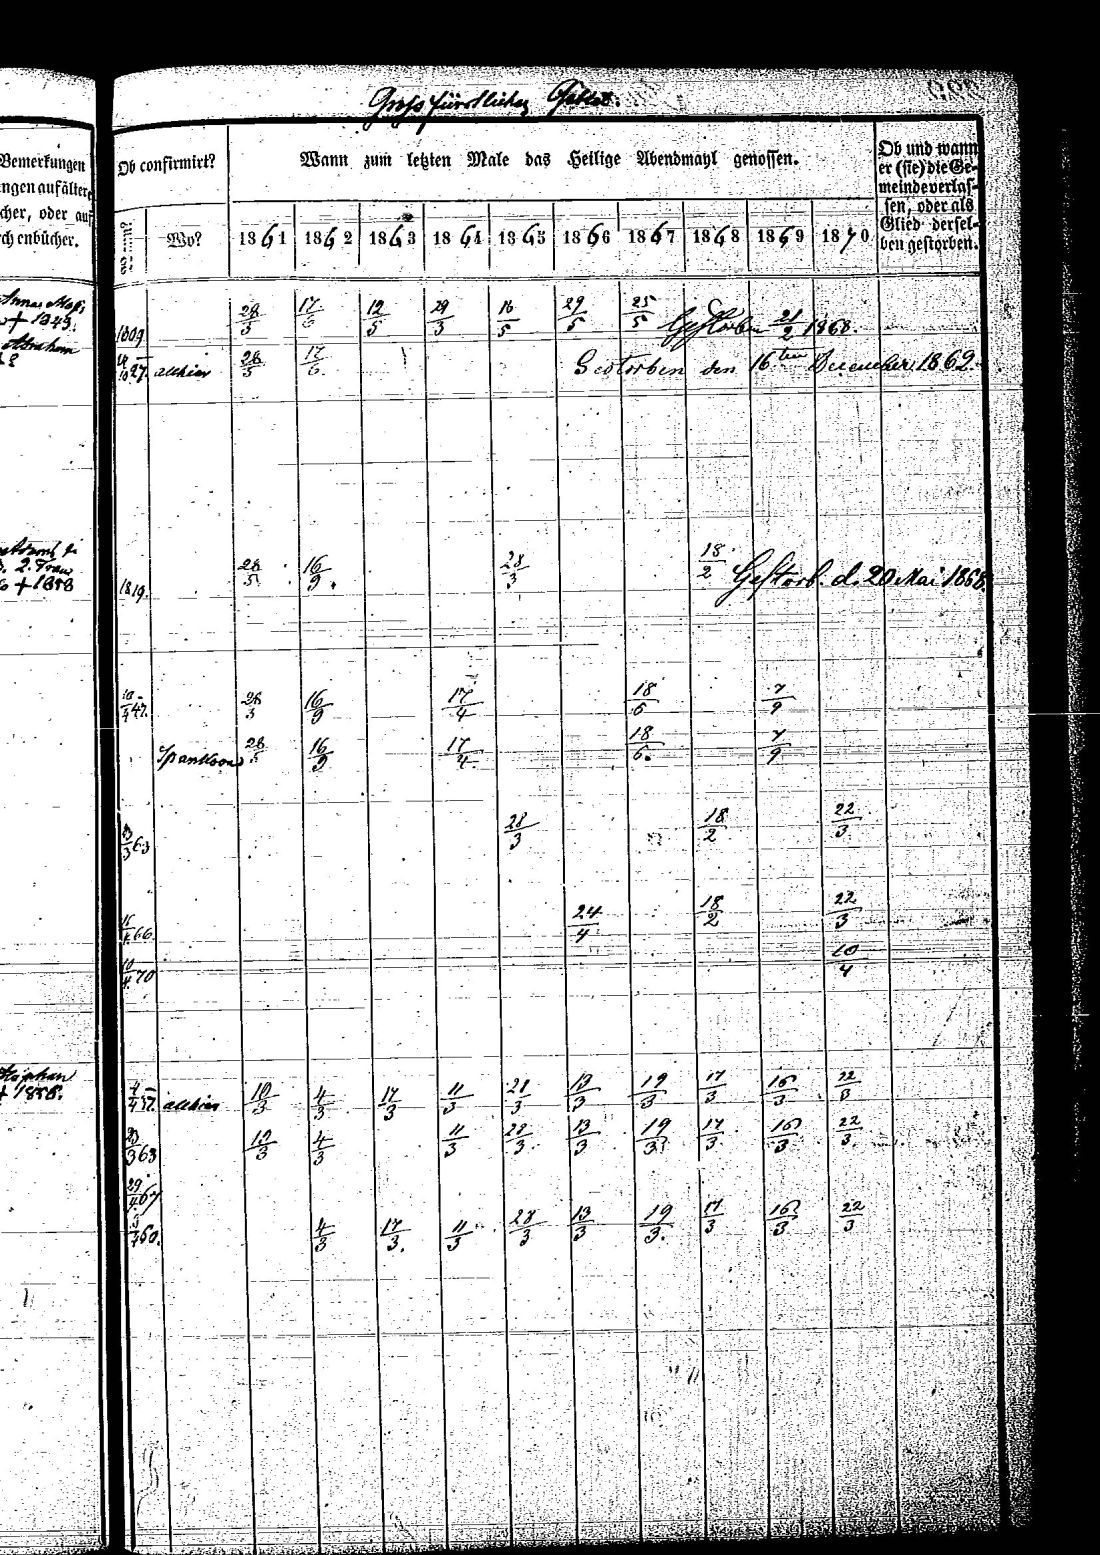 Grossfürstliches Gebiet.
Bemerkungen
ngen auf ältere
cher, oder auf
rchenbücher.
Ob confirmirt?
Wann zum letzten Male das Heilige Abendmahl genossen.
Ob und wann
er (sie) die Ge-
meinde verlas-
sen, oder als
Glied dersel-
ben gestorben.
Wo?
1861 1862 1863 1864 1865 1866 1867 1868 1869 1870
+ 1849.
1809 28/5 17/6 12/5 29/3 16/5 29/5 25/5 Gestorben 21/2 1868.
27. allhier 28/5 17/6 Gestorben den 16ten December 1869.
2. Frau
+ 1858
1819. 28/5 16/9. 28/3 18/2 Gestorb. d. 20 Mai 1868.
47. 28/3 16/9 17/4 18/6 7/9
28/5 16/9 17/4. 18/6. 7/9
63 28/3 18/2 22/3
66. 24/4 18/2 22/3
10/4 70 10/4
Stephan
+ 1858.
57. allhier 10/3 4/3 17/3 11/3 28/3 13/3 19/3 17/3 16/3 22/3
63 10/3 4/3 11/3 28/3 13/3 19/3 17/3 16/3 22/3.
29/4 67
60. 4/3 17/3. 11/3 28/3 13/3 19/3. 17/3 16/3 22/3